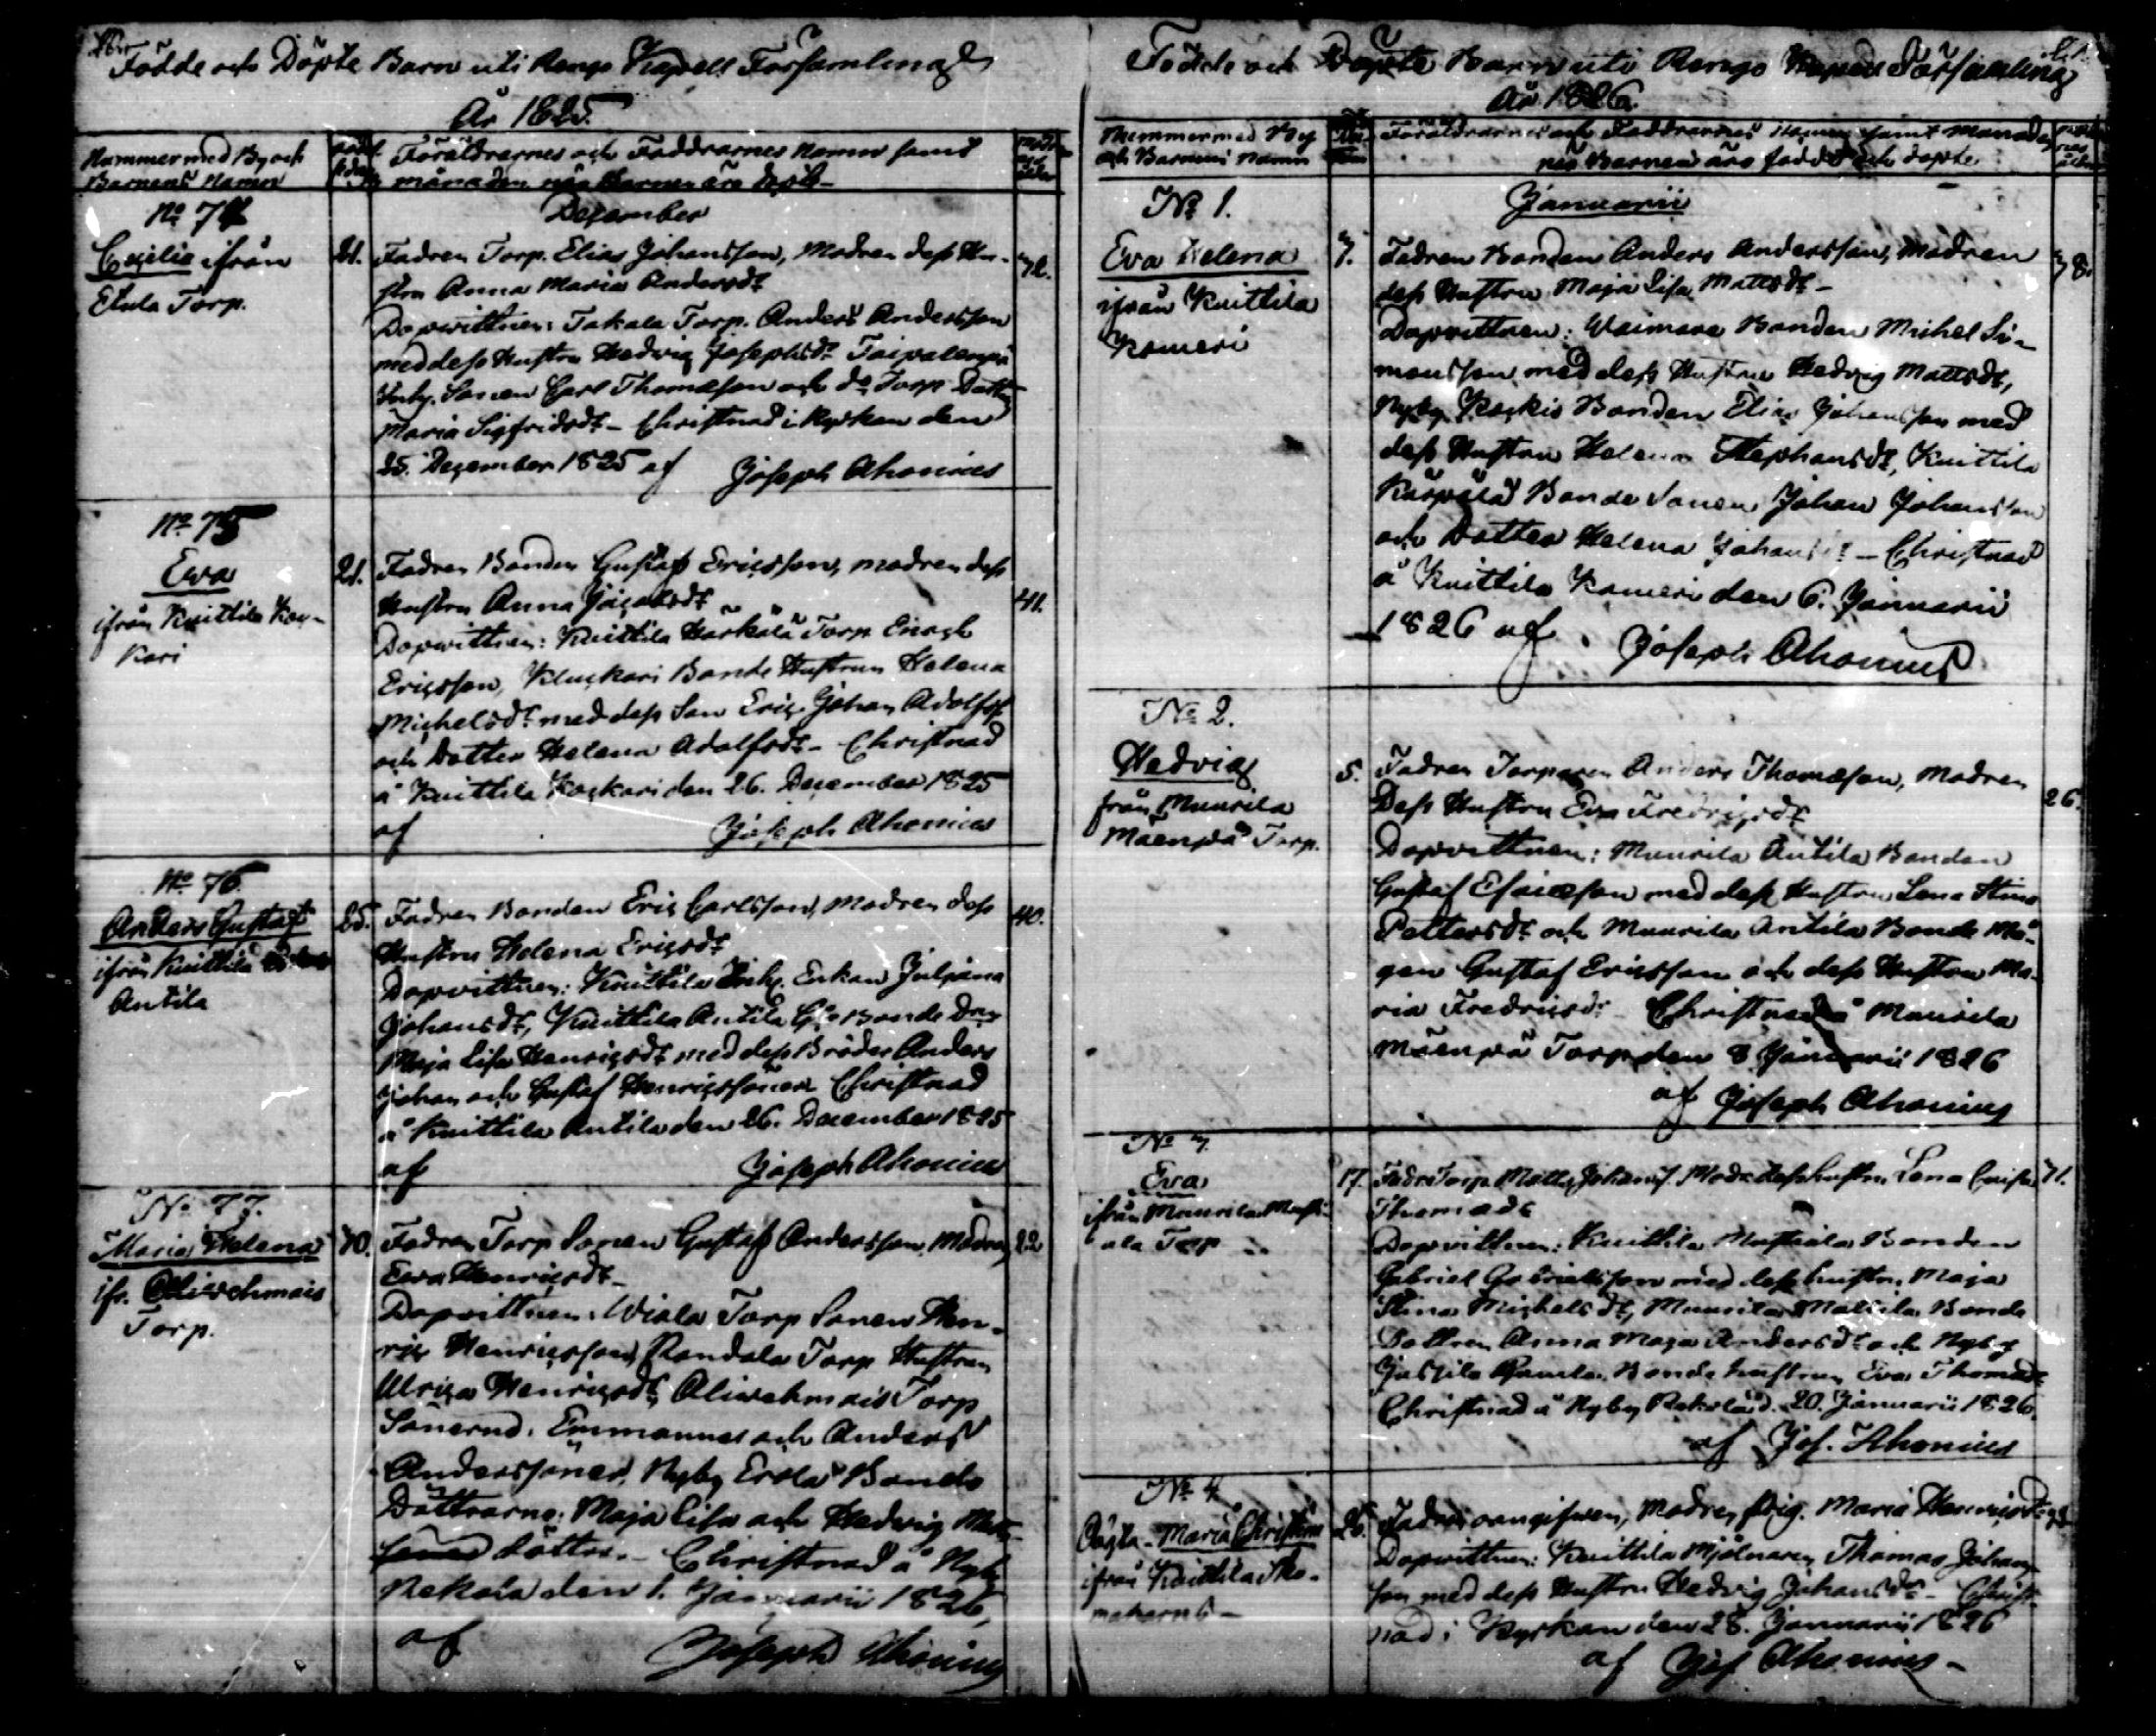 Födde och Döpte Barn uti Rengo Kapell Församling
År 1825.
Nummer med By och
Barnens Namn
Föräldrarnes och Faddrarnes Namn samt
månaden när Barnen äro
December
No 74
Cecilia ifrån
Etula Torp.
21. Fadren Torp. Elias Johansson, Modren dess Hu-
stru Anna Maria Andersdr
Dopvittnen: Takala Torp. Anders Andersson
med dess Hustru Hedvig Josephsdr
Sonen Carl Thomasson och do Torp. Dotter
Maria Sigfridsdr - Christnad i Kyrkan den
25. December 1825 af Joseph Ahonius
No 75
Ewa
ifrån Knittila Kou-
kari
21. Fadren Bonden Gustaf Ericsson, modren dess
Hustru Anna Jacobsdr
41.
Dopvittnen: Knittila Härkälä Torp Enoch
Ericsson, Bonde Hustrun Helena
Michelsdr med dess Son Eric Johan Adolfss.
och Dotter Helena Adolfsdr - Christnad
å Knittila den 26. December 1825
af Joseph Ahonius
No 76
Anders Gustaf
ifrån Knittila
Antila
25. Fadren Bonden Eric Carlsson, Modren dess
40.
Hustru Helena Ericsdr
Dopvittnen: Knittila Enkan Juliana
Johansdr, Knittila Antila Bonde
Maja Lisa Henricsdr med dess Bröder Anders
Johan och Gustaf Henricssöner Christnad
å Knittila Antila den 26. December 1825
af Joseph Ahonius
No 77.
Maria Helena
ifr. Alivehmais
Torp.
30. Fadren Torp Sonen Gustaf Andersson, Modren 22
Eva Henricsdr -
Dopvittnen: Wiala Torp Sonen Hen-
ric Henricsson, Randala Torp Hustrun
Ulrica Henricsdr, Alivehmais Torp
Sönerna: Emmanuel och Anders
Anderssöner, Nyby Erola Bonde
Döttrarne: Maja Lisa och Hedvig Mats-
döttrar. - Christnad å Nyby
Rekola den 1. Januarii 1826,
af Joseph Ahonius
Födde och Döpte Barn uti Rengo Kapell Församling
År 1826.
Nummer med By
och Barnens Namn
Föräldrarnes och Faddrarnes Namn samt Månaden
när Barnen äro födde och döpte
Januarii
No 1.
Eva Helena
ifrån Knittila
Kameri
3. Fadren Bonden Anders Andersson, Modren
38.
dess Hustru Maja Lisa Mattsdr -
Dopvittnen: Waimare Bonden Michel Si-
monsson med dess Hustru Hedvig Mattsdr,
Nyby Bonden Elias Johansson med
dess Hustru Helena Stephansdr, Knittila
Kärpälä Bonde Sonen Johan Johansson
och Dotter Helena Johansdr - Christnad
å Knittila Kameri den 6. Januarii
1826 af Joseph Ahonius
No 2.
Hedvig
från Muurila
Mäenpää Torp.
5. Fadren Torparen Anders Thomasson, Modren
26.
Dess Hustru Eva Fredricsdr
Dopvittnen: Muurila Antila Bonden
Gustaf Esaiasson med dess Hustru Lena Stina
Pettersdr och Muurila Antila Bonde Må-
gen Gustaf Ericsson och dess Hustru Ma-
ria Fredricsdr Christnad å Muurila
Mäenpää Torp den 8 Januarii 1826
af Joseph Ahonius
No 3
Eva
ifrån Muurila
ala Torp
17. Fadr. Torp. Matts Johanss. Modr. dess hustru Lena Cajsa 31.
Thomasdr
Dopvittnen: Knittila Bonden
Gabriel Gabrielsson med dess hustru Maja
Stina Michelsdr, Muurila Mattila Bonde
Dottren Anna Maja Andersdr och Nyby
Bonde hustrun Eva Thomasdr
Christnad å Nyby Rekola d. 20. Januarii 1826.
af Jos. Ahonius
No 4
Oägta Maria Christina
ifrån Knittila
makarns -
26. Fadren oangifven, Modren Pig. Maria Henricsdr
Dopvittnen: Knittila Mjölnaren Thomas Johans-
son med dess Hustru Hedvig Johansdr - Christ-
nad i Kyrkan den 28. Januarii 1826
af Jos Ahonius -